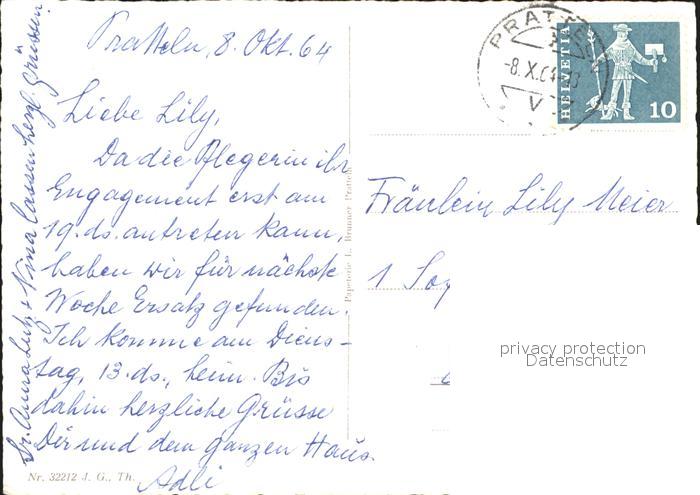 Pratteln, 8. Okt. 64
Liebe Lily,
Da die Pflegerin ihr
Engagement erst am
19. ds. antreten kann,
haben wir für nächste
Woche Ersatz gefunden.
Ich komme am Diens-
tag, 13. ds., heim. Bis
dahin herzliche Grüsse
Dir und dem ganzen Haus.
Adli
Sr. Anna Lutz + Nina lassen herzl. grüssen.
Nr. 32212 J. G., Th.
Papeterie L. Brunner Pratteln
PRATTELN
-8.X.64-
V
HELVETIA
10
Fräulein Lily Meier
privacy protection
Datenschutz